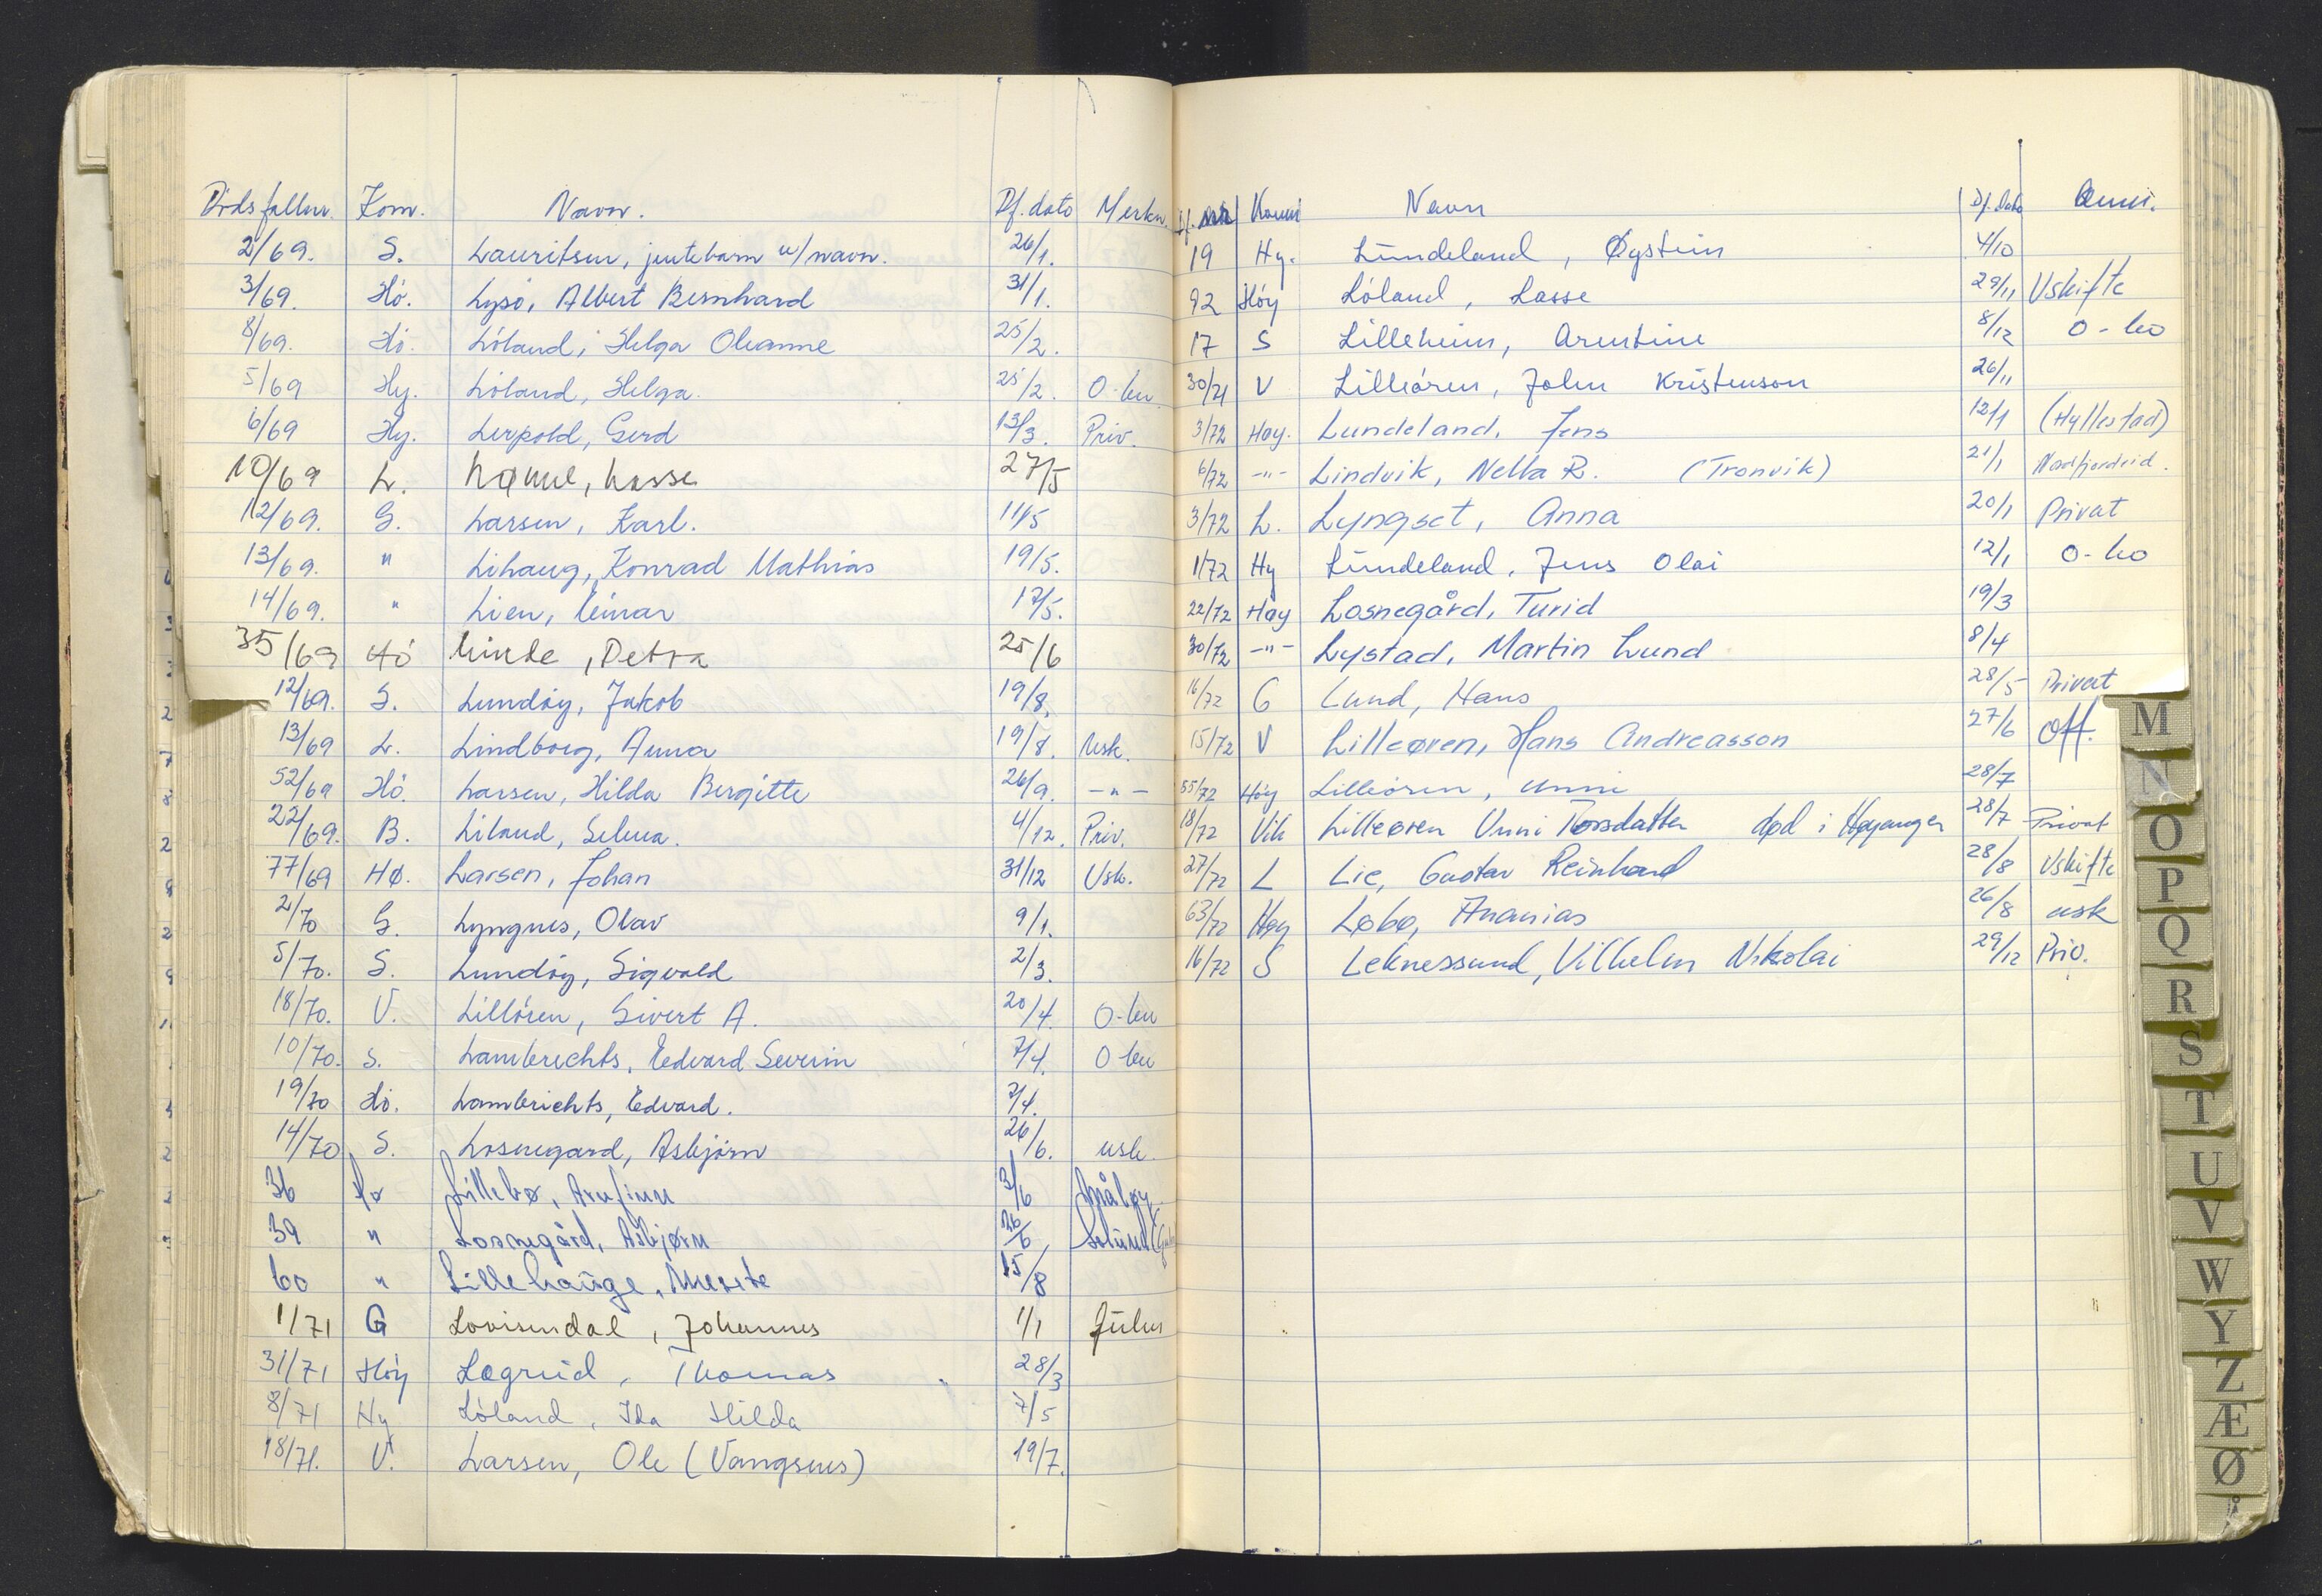 Dødsfallnr. Kom. Navn. Df. dato Merkn.
2/69. S. Lauritsen, jentebarn u/navn. 26/1.
3/69. Hö. Lysö, Albert Bernhard 31/1.
8/69. Hö. Löland, Helga Oleanne 25/2.
5/69 Hy. Löland, Helga. 25/2. O-bu
6/69 Hy. Lerpold, Gerd 13/3. Priv.
10/69 L. Lasse 27/5
12/69. G. Larsen, Karl. 11/5
13/69. " Lihaug, Konrad Mathias 19/5.
14/69. " Lien, Einar 17/5.
35/69 Hö Linde, Petra 25/6
12/69. S. Lundöy, Jakob 19/8.
13/69 L. Lindborg, Anna 19/8. Usk.
52/69 Hö. Larsen, Hilda Bergitte 26/9. -"-
22/69. B. Liland, Selma. 4/12. Priv.
77/69 Hø. Larsen, Johan 31/12 Usk.
2/70 G. Lyngnes, Olav 9/1.
5/70. S. Lundöy, Sigvald 2/3.
18/70. V. Lillören, Sivert A. 20/4. O-bu
10/70. S. Lambrechts, Edvard Severin 7/4. O-bu
19/70 Hö. Lambrichts, Edvard. 7/4.
14/70 S. Losnegard, Asbjörn 26/6. usk.
36 Hø Lillebø, Arnfinn 3/6 Måløy
39 " Losnegård, Asbjørn 26/6 Solund
60 " Lillehauge, Merete 15/8
1/71 G Lovisendal, Johannes 1/1 Gulen
31/71 Höy Lægreid, Thomas 28/3
8/71 Hy Löland, Ida Hilda 7/5
18/71. V. Larsen, Ole (Vangsnes) 19/7.
Df. nr Komm Navn Df. Dato Anm.
19 Hy. Lundeland, Øystein 4/10
92 Höy Löland, Lasse 29/11 Uskifte
17 S Lilleheim, Arentine 8/12 O-bo
30/71 V Lilleören, John Kristenson 26/11
3/72 Høy. Lundeland, Jens 12/1 (Hyllestad)
6/72 -"- Lindvik, Nella R. (Tronvik) 21/1 Nordfjordeid.
3/72 L. Lyngset, Anna 20/1 Privat
1/72 Hy Lundeland, Jens Olai 12/1 O-bo
22/72 Høy Losnegård, Turid 19/3
30/72 -"- Lystad, Martin Lund 8/4
16/72 G Lund, Hans 28/5 Privat
15/72 V Lilleøren, Hans Andreasson 27/6 Off.
55/72 Höy Lilleören, Unni 28/7
18/72 Vik Lilleøren Unni Torsdatter død i Høyanger 28/7 Privat
27/72 L Lie, Gustav Reinhard 28/8 Uskifte
63/72 Høy Løbø, Ananias 26/8 usk
16/72 S Leknessund, Vilhelm Nikolai 29/12 Priv.
M
N
O
P
Q
R
S
T
U
V
W
Y
Z
Æ
Ø
Å